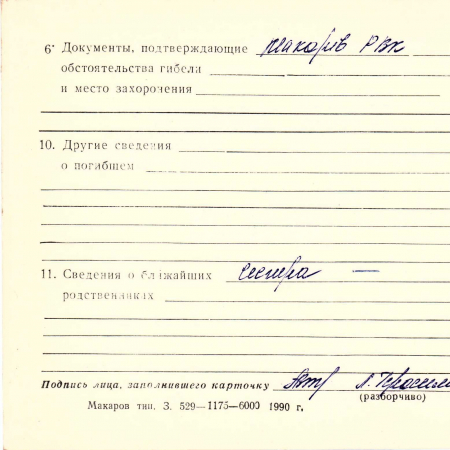 6· Документы, подтверждающие Макаров РВК
обстоятельства гибели
и место захоронения
10. Другие сведения
о погибшем
11. Сведения о ближайших сестра —
родственниках
Подпись лица, заполнившего карточку
(разборчиво)
Макаров тип. З. 529—1175—6000 1990 г.